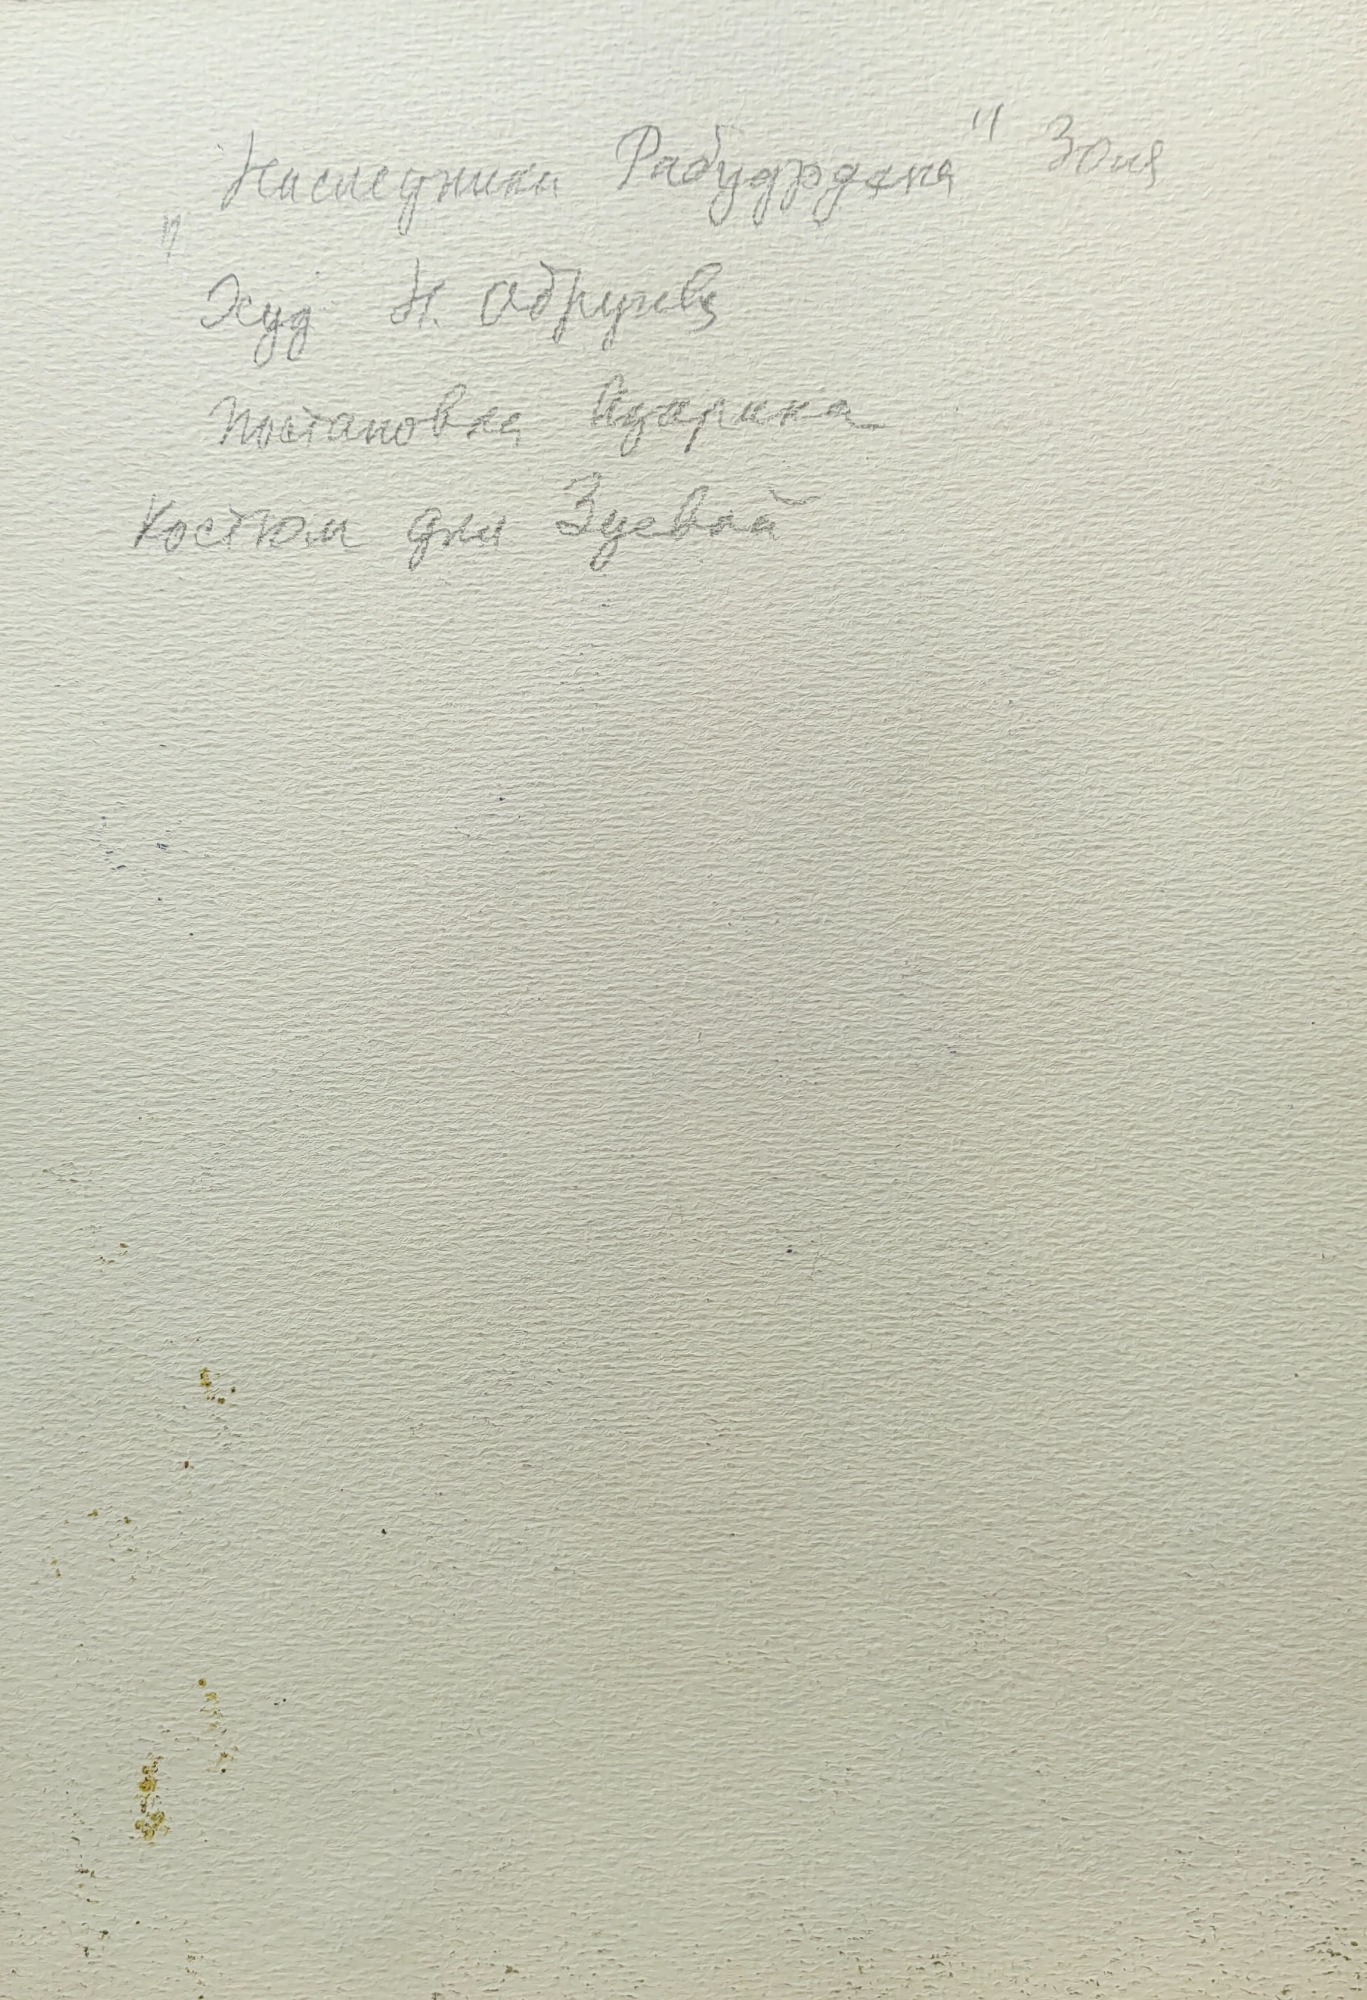 "Наследники Рабурдена" Зоя
Худ. Н. Обручев
Постановка Азарина
Костюм для Зуевой